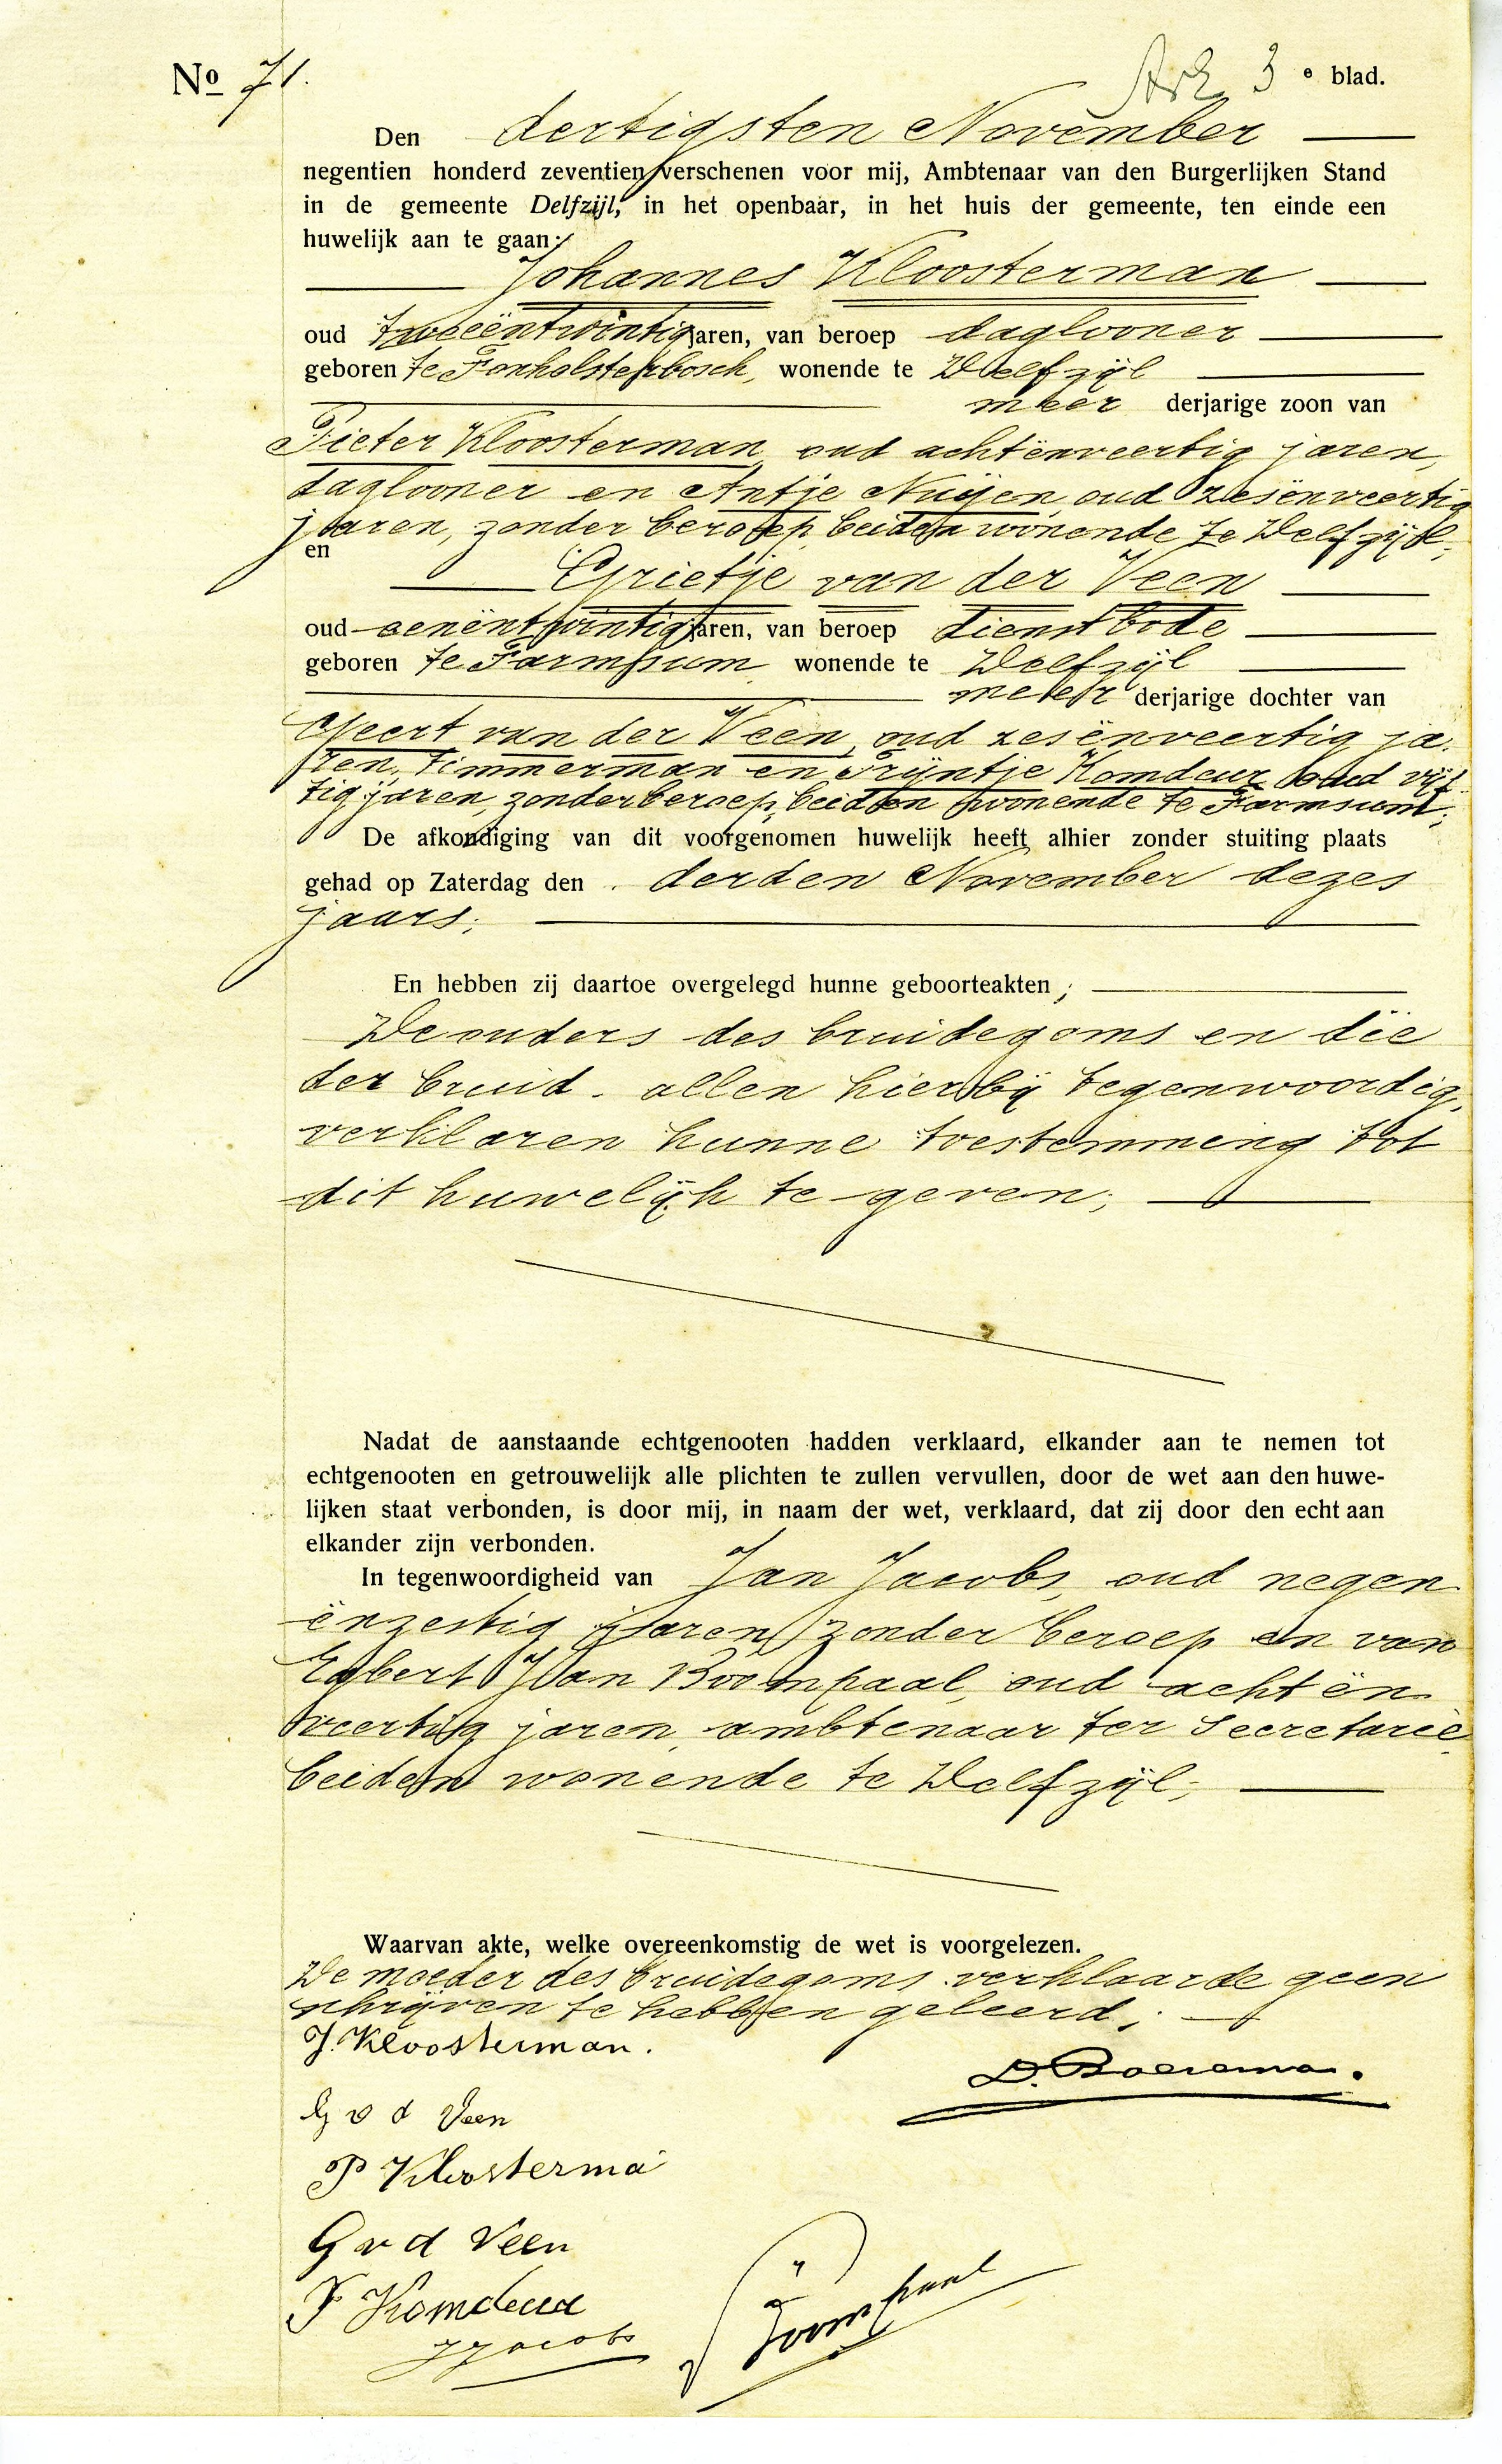 No 71.
3 e blad.
Den dertigsten November
negentien honderd zeventien verschenen voor mij, Ambtenaar van den Burgerlijken Stand
in de gemeente Delfzijl, in het openbaar, in het huis der gemeente, ten einde een
huwelijk aan te gaan:
Johannes Kloosterman
oud tweeëntwintig jaren, van beroep daglooner
geboren te Foxholsterbosch, wonende te Delfzijl
meer derjarige zoon van
Pieter Kloosterman, oud achtënveertig jaren,
daglooner en Antje Nuijen, oud zesënveertig
jaren, zonder beroep, beiden wonende te Delfzijl;
en
Grietje van der Veen
oud eenëntwintig jaren, van beroep dienstbode
geboren te Farmsum, wonende te Delfzijl
meer derjarige dochter van
Geert van der Veen, oud zesënveertig ja-
ren, timmerman en Trijntje Komdeur, oud vijf-
tig jaren, zonder beroep, beiden wonende te Farmsum;
De afkondiging van dit voorgenomen huwelijk heeft alhier zonder stuiting plaats
gehad op Zaterdag den derden November dezes
jaars;
En hebben zij daartoe overgelegd hunne geboorteakten;
De ouders des bruidegoms en die
der bruid, allen hierbij tegenwoordig,
verklaren hunne toestemming tot
dit huwelijk te geven;
Nadat de aanstaande echtgenooten hadden verklaard, elkander aan te nemen tot
echtgenooten en getrouwelijk alle plichten te zullen vervullen, door de wet aan den huwe-
lijken staat verbonden, is door mij, in naam der wet, verklaard, dat zij door den echt aan
elkander zijn verbonden.
In tegenwoordigheid van Jan Jacobs, oud negen-
ënzestig jaren, zonder beroep en van
Egbert Jan Boompaal, oud achtën-
veertig jaren, ambtenaar ter secretarie,
beiden wonende te Delfzijl;
Waarvan akte, welke overeenkomstig de wet is voorgelezen.
De moeder des bruidegoms verklaarde geen
schrijven te hebben geleerd;
J. Kloosterman.
D. Boerema.
G v d Veen
P Kloosterma
G v d Veen
T Komdeur
J Jacobs
Boompaal